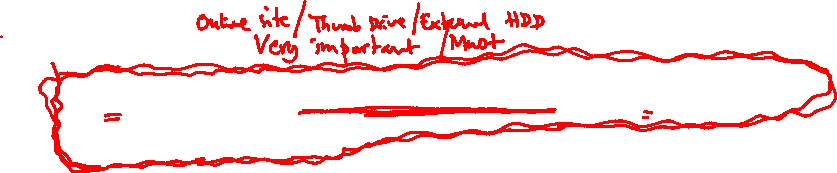 Online site / Thumb Drive / External HDD
Very important / Must